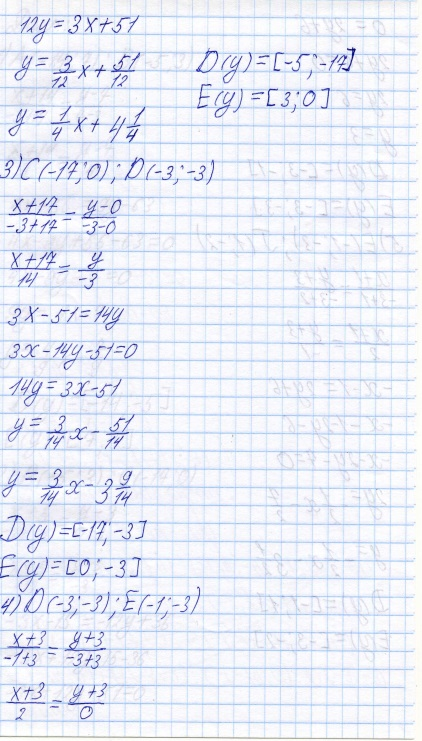 12y = 3x + 51
y = 3/12 x + 51/12
D(y) = [-5; -17]
y = 1/4 x + 4 1/4
E(y) = [3; 0]
3) C(-17; 0); D(-3; -3)
x+17/-3+17 = y-0/-3-0
x+17/14 = y/-3
3x - 51 = 14y
3x - 14y - 51 = 0
14y = 3x - 51
y = 3/14 x - 51/14
y = 3/14 x - 3 9/14
D(y) = [-17; -3]
E(y) = [0; -3]
4) D(-3; -3); E(-1; -3)
x+3/-1+3 = y+3/-3+3
x+3/2 = y+3/0